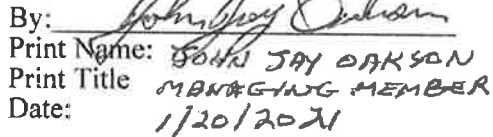 By: John Jay Oakson
Print Name: JOHN JAY OAKSON
Print Title MANAGING MEMBER
Date: 1/20/2021